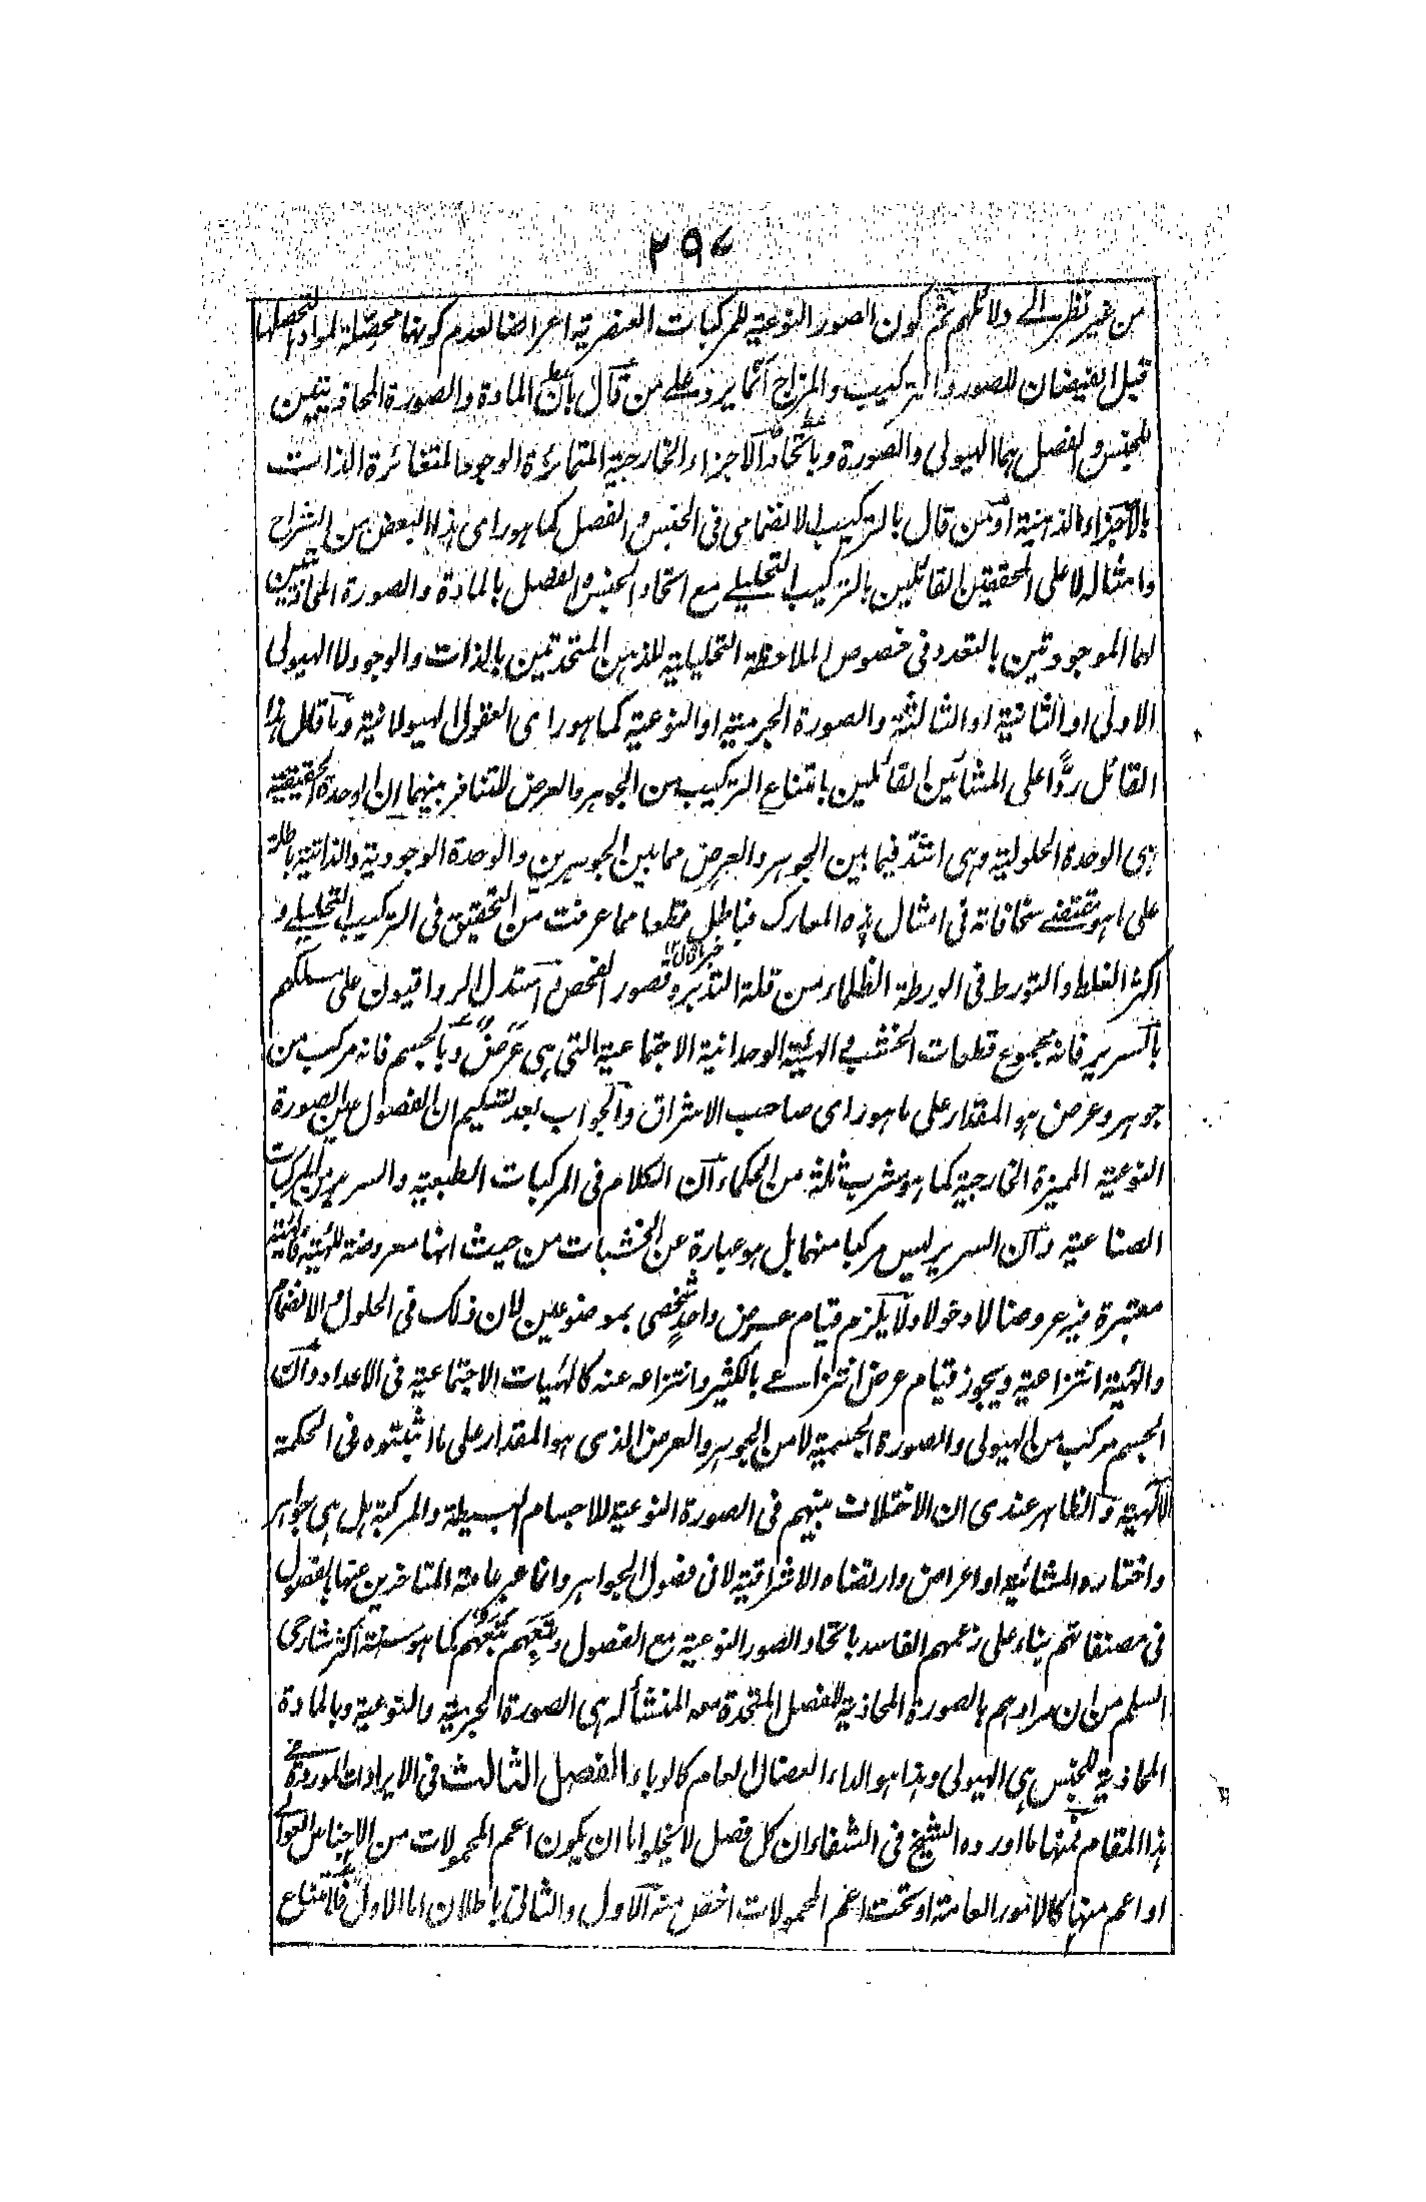 ٢٩٧
من غير نظر الى دلائلهم ثم كون الصور النوعية للمركبات العنصرية اعراضا لعدم كونها محصلة لموادها لتحصلها
قبل الفيضان للصور والتركيب والمزاج انما يرد على من قال بان المادة والصورة المحاذيتين
للجنس والفصل هما الهيولى والصورة وباتحاد الاجزاء الخارجية المتمائزة الوجود المتغائرة الذات
بالاجزاء الذهنية او من قال بالتركيب الانضمامى فى الجنس والفصل كما هو راى هذا البعض من الشراح
وامثاله لا على المحققين القائلين بالتركيب التحليلے مع اتحاد الجنس والفصل بالمادة والصورة المحاذيتين
لهما الموجودتين بالتعدد فى خصوص الملاحظة التحليلية للذهن المتحدتين بالذات والوجود لا الهيولى
الاولى او الثانية او الثالثة والصورة الجرمية او النوعية كما هو راى العقول الهيولانية وما قال هذا
القائل ردًّا على المشائين القائلين بامتناع التركيب من الجوهر والعرض للتنافر بينهما ان الوحدة الحقيقية
هى الوحدة الحلولية وهى اشد فيما بين الجوهر والعرض مما بين الجوهرين والوحدة الوجودية والذاتية باطلة
على ما هو مقتضے سخافاته فى امثال هذه المعارك فباطل قطعا مما عرفت من التحقيق فى التركيب التحليلے و
اكثر الغلط والتورط فى الورطة الظلماء من قلة التدبر وقصور الفحص ثم استدل الرواقيون على مسلكهم
بالسرير فانه مجموع قطعات الخشب والهيئة الوحدانية الاجتماعية التى هى عرض وبالجسم فانه مركب من
جوهر وعرض هو المقدار على ما هو راى صاحب الاشراق والجواب بعد تسليم ان الفصول عين الصورة
النوعية المميزة الخارجية كما هو مشرب ثلة من الحكماء ان الكلام فى المركبات الطبعية والسرير من المركبات
الصناعية وان السرير ليس مركبا منهما بل هو عبارة عن الخشبات من حيث انها معروضة للهيئة فالهيئة
معتبرة فيه عروضا لا دخولا ولا يلزم قيام عرض واحد شخصى بموضوعين لان ذلك فى الحلول الانضمامى
والهيئة انتزاعية ويجوز قيام عرض انتزاعے بالكثير وانتزاعه عنه كالهيئات الاجتماعية فى الاعداد وان
الجسم مركب من الهيولى والصورة الجسمية لا من الجوهر والعرض الذى هو المقدار على ما اثبتوه فى الحكمة
الالهية والظاهر عندى ان الاختلاف بينهم فى الصورة النوعية للاجسام البسيطة والمركبة هل هى جواهر
واختاره المشائية او اعراض وارتضاه الاشراقية لا فى فصول الجواهر وانما عبر عامة المتاخرين عنها بالفصول
فى مصنفاتهم بناء على زعمهم الفاسد باتحاد الصور النوعية مع الفصول وتبعهم كما هو سنة اكثر شارحى
السلم من ان مرادهم بالصورة المحاذية للفصل المتحدة معه المنشأ له هى الصورة الجرمية والنوعية وبالمادة
المحاذية للجنس هى الهيولى وهذا هو الداء العضال العام كالوباء الفصل الثالث فى الايرادات الموردة فے
هذا المقام فمنها ما اورده الشيخ فى الشفاء ان كل فصل لا يخلو اما ان يكون اعم المحمولات من الاجناس العوالے
او اعم منها كالامور العامة او تحت اعم المحمولات اخص منه الاول والثانى باطلان اما الاول فلامتناع